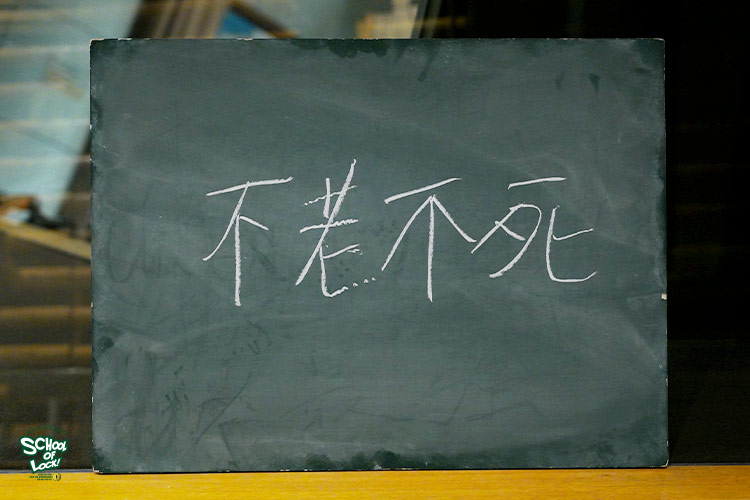 不老不死
SCHOOL
OF
LOCK!